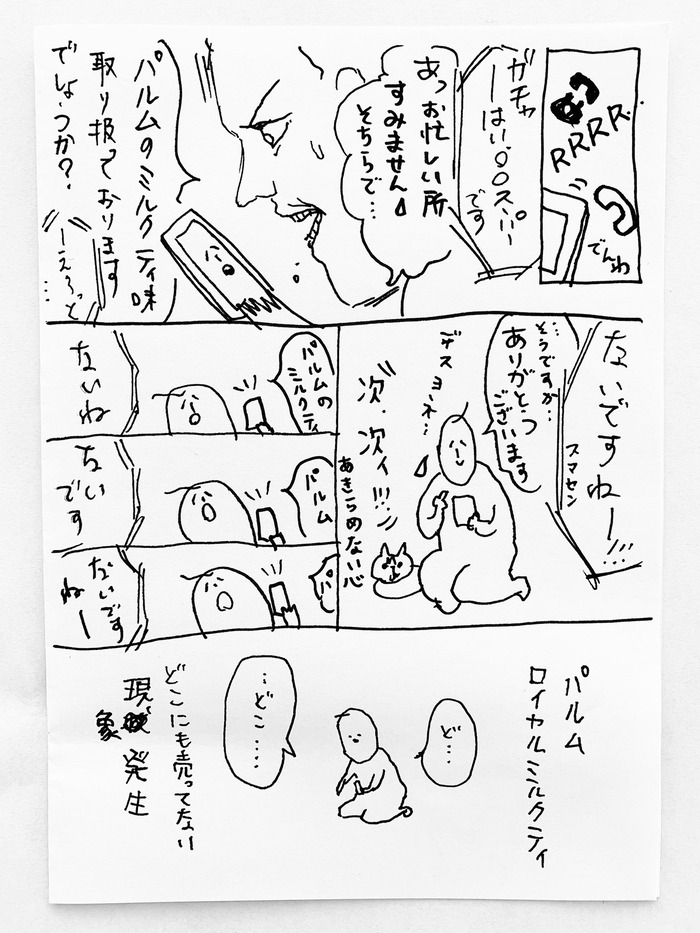 RRRR..
でんわ
ガチャ
ーはい、○○スーパー
です
あっお忙しい所
すみません
そちらで…
パルムのミルクティ味
取り扱っております
でしょうか？
ーえーっと
…
ないですねー!!!
スマセン
…そうですか…
ありがとう
ございます
デスヨネ…
次、次ィ!!!
あきらめない心
パルムの
ミルクティ
ないね
パルム
ない
です
パ
ないです
ねー
パルム
ロイヤルミルクティ
ど…
…どこ…
どこにも売ってない
現象発生